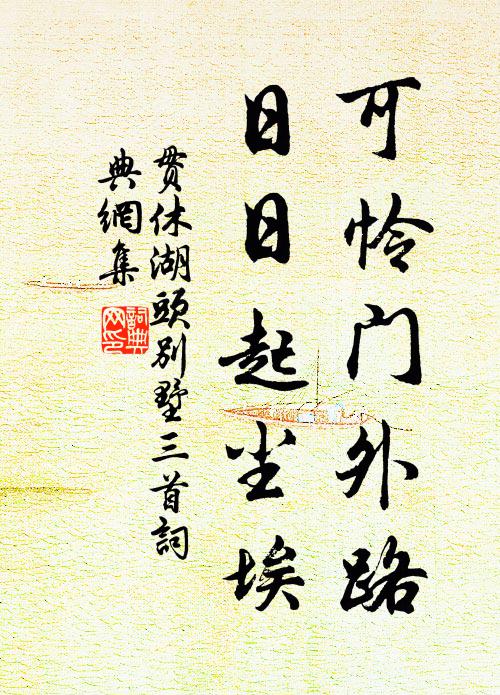 可怜门外路
日日起尘埃
贯休湖頭别墅三首詞
典網集
詞典
网印